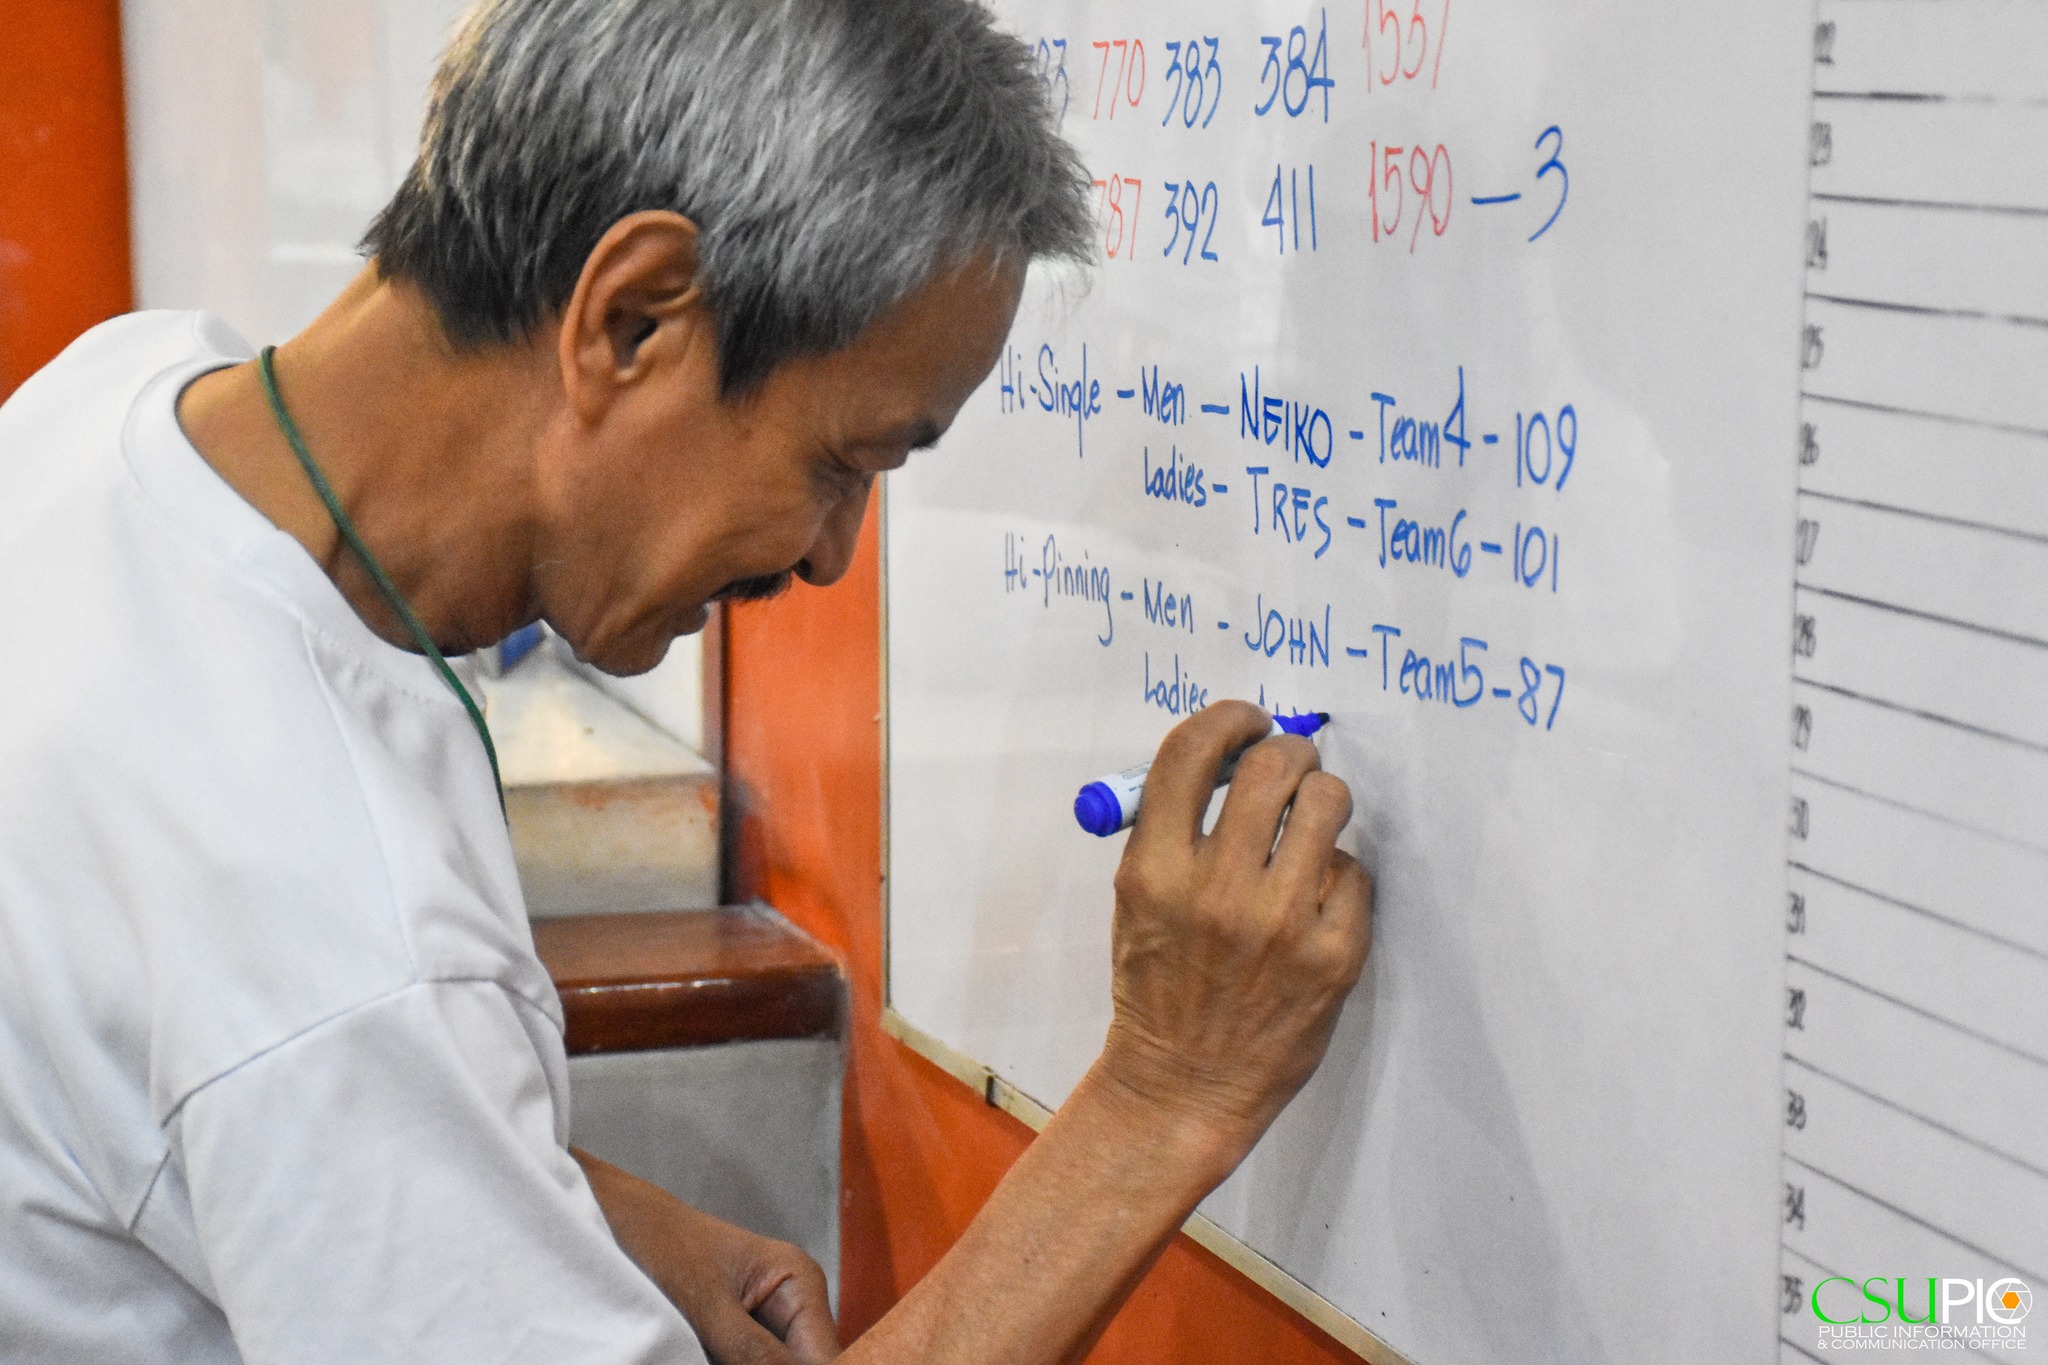 770 383 384 1537
787 392 411 1590 - 3
Hi-Single - Men - NEIKO - Team 4 - 109
Ladies - TRES - Team 6 - 101
Hi-Pinning - Men - JOHN - Team 5 - 87
Ladies -
22
23
24
25
26
27
28
29
30
31
32
33
34
35
CSUPIO
PUBLIC INFORMATION
& COMMUNICATION OFFICE